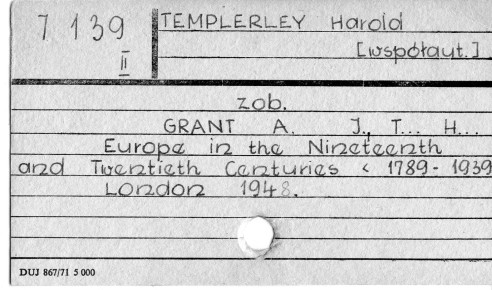 7 139
II
TEMPLERLEY Harold
[współaut.]
zob.
GRANT A. J., T... H...
Europe in the Nineteenth
and Twentieth Centuries < 1789-1939
London 1948.
DUJ 867/71 5 000